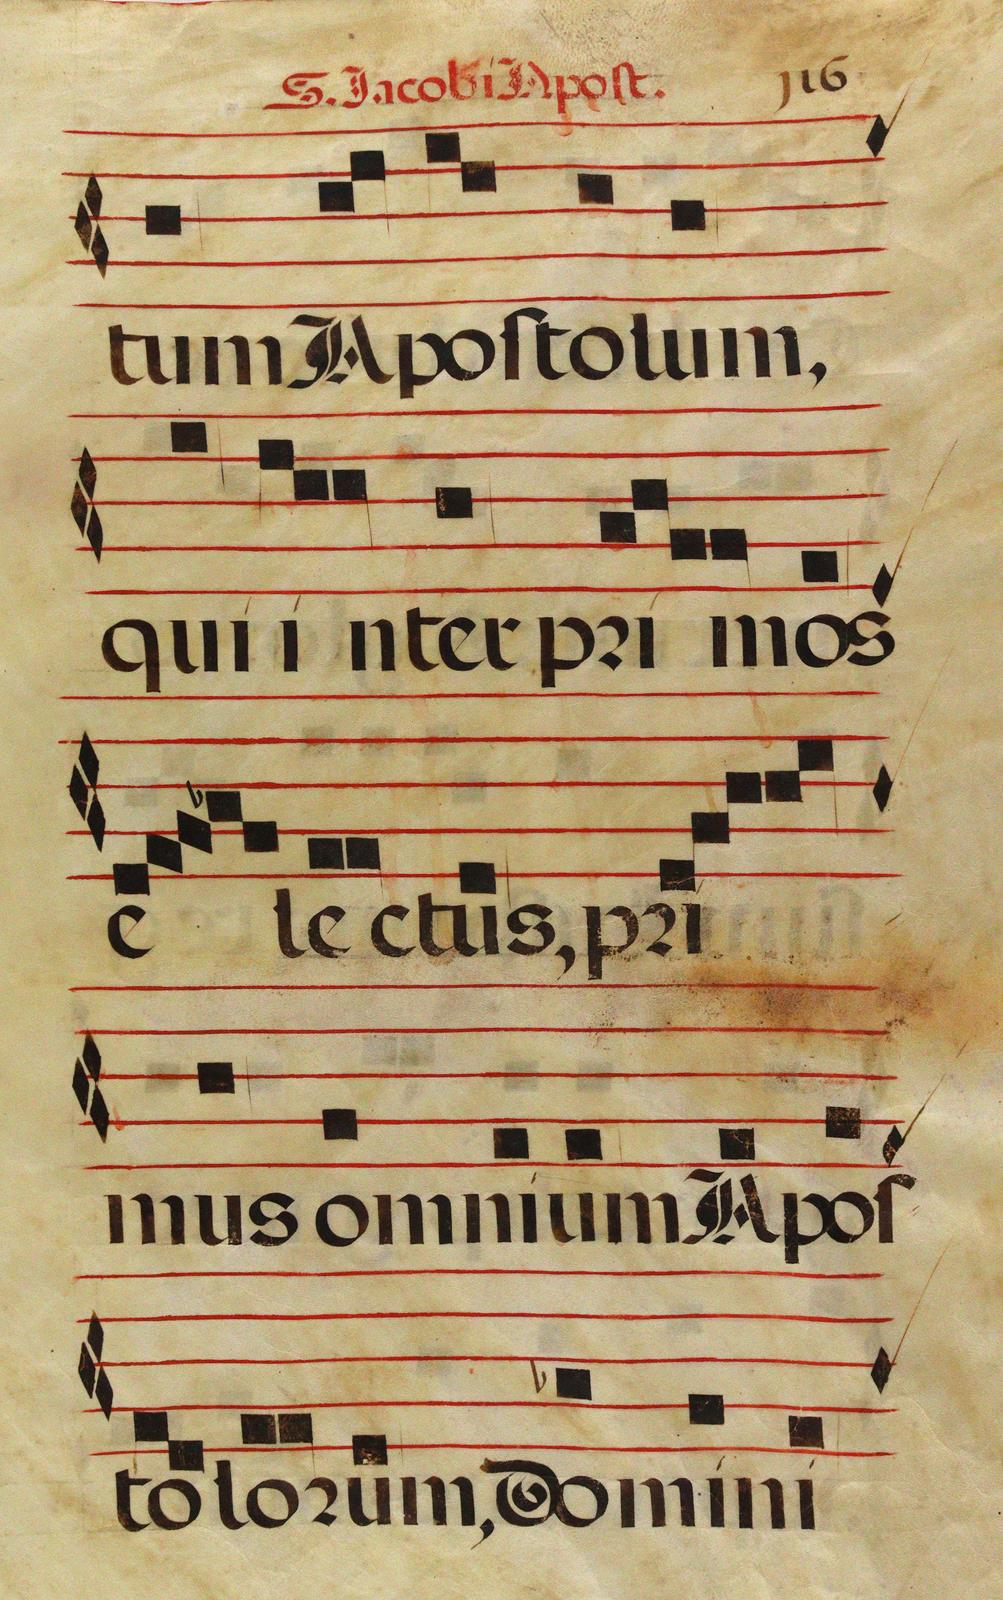 S. Jacobi Apost. 116
tum Apostolum,
qui i nter pri mos
e le ctus, pri
mus omnium Apos
tolorum, Domini